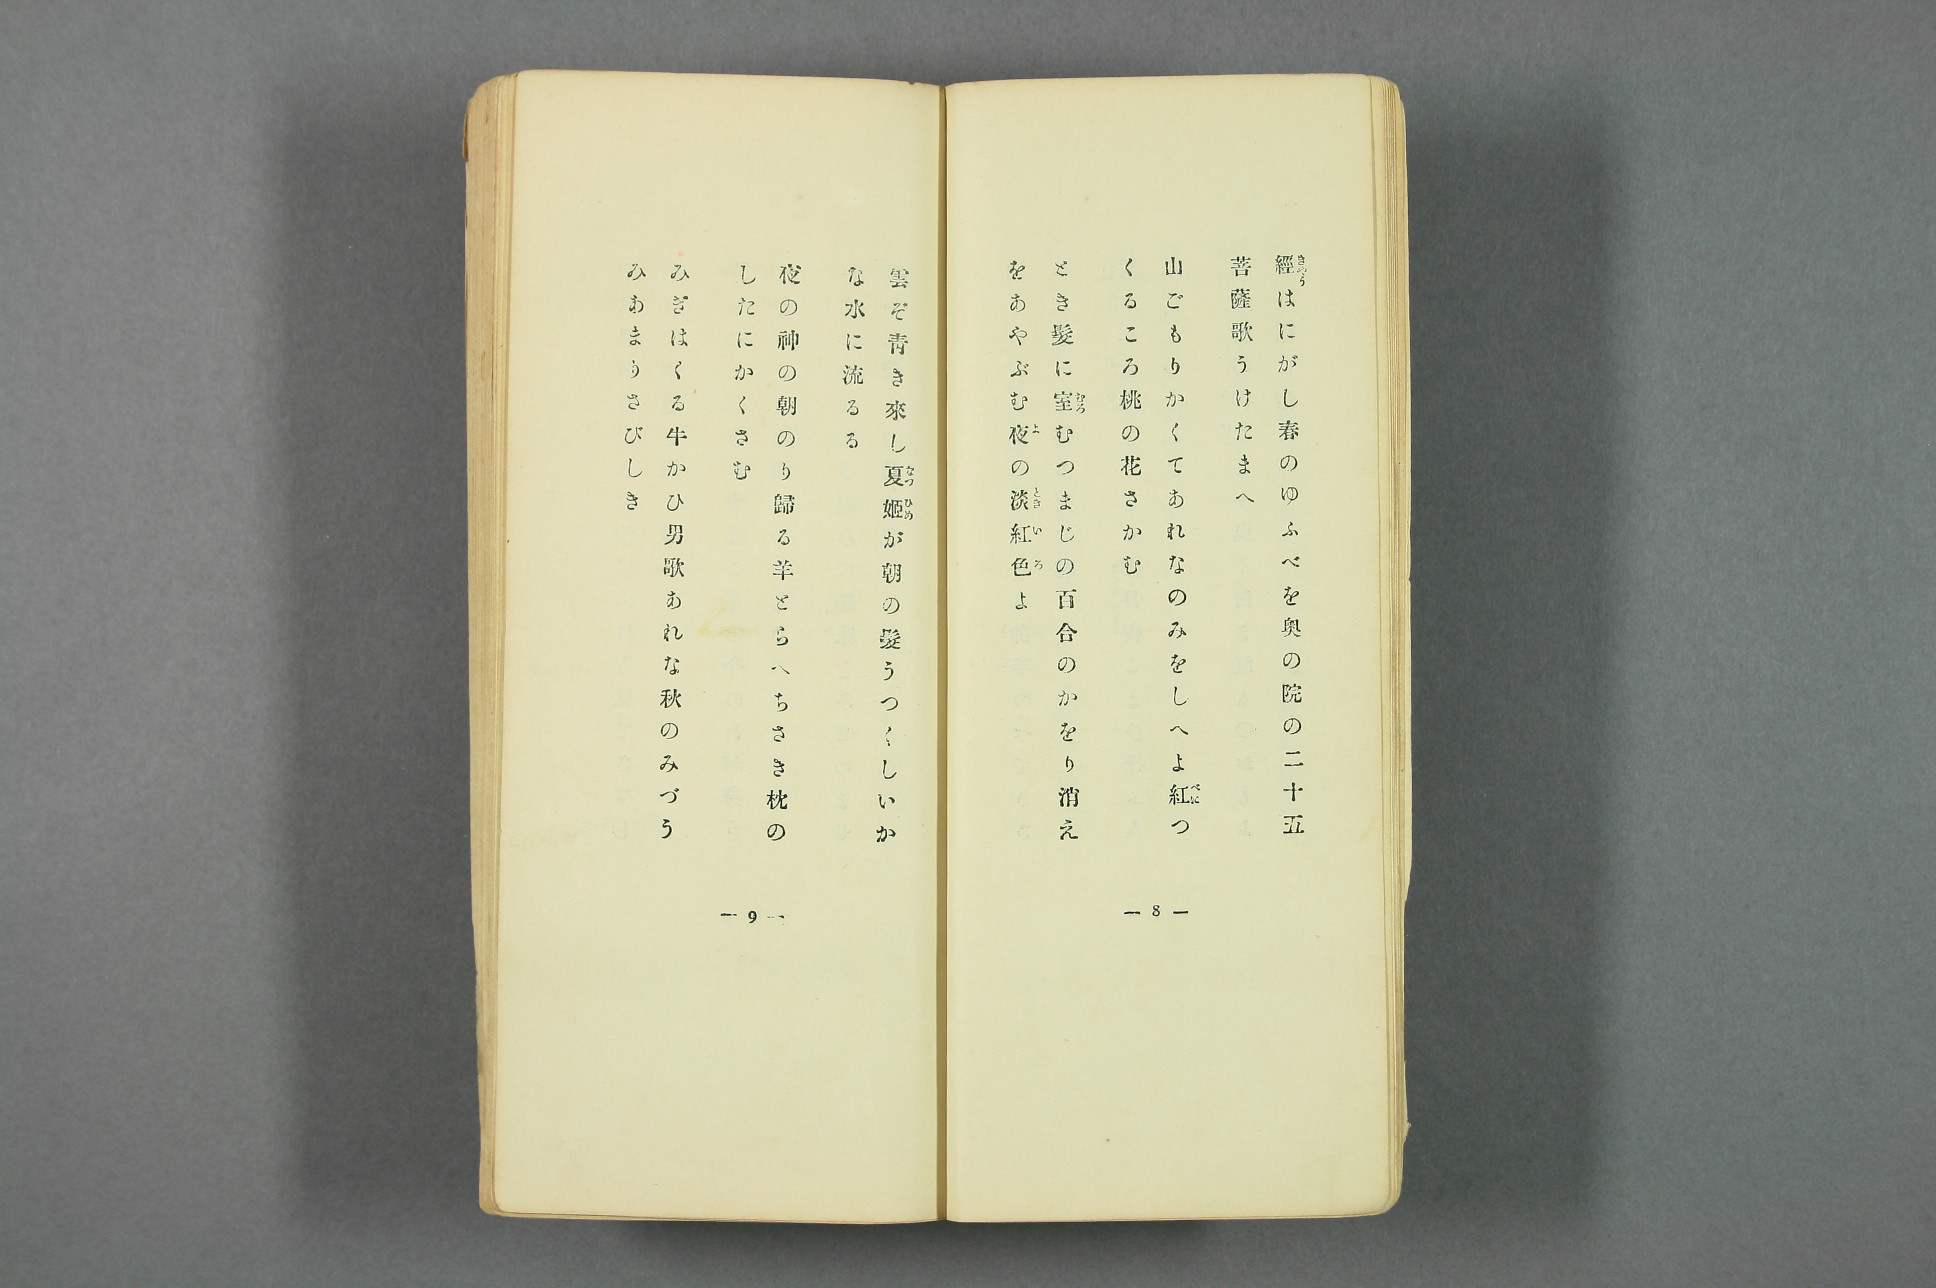 經はにがし春のゆふべを奥の院の二十五
菩薩歌うけたまへ
山ごもりかくてあれなのみをしへよ紅つ
くるころ桃の花さかむ
とき髮に室むつまじの百合のかをり消え
をあやぶむ夜の淡紅色よ
— 8 —
雲ぞ青き來し夏姬が朝の髮うつくしいか
な水に流るる
夜の神の朝のり歸る羊とらへちさき枕の
したにかくさむ
みぎはくる牛かひ男歌あれな秋のみづう
みあまりさびしき
— 9 —